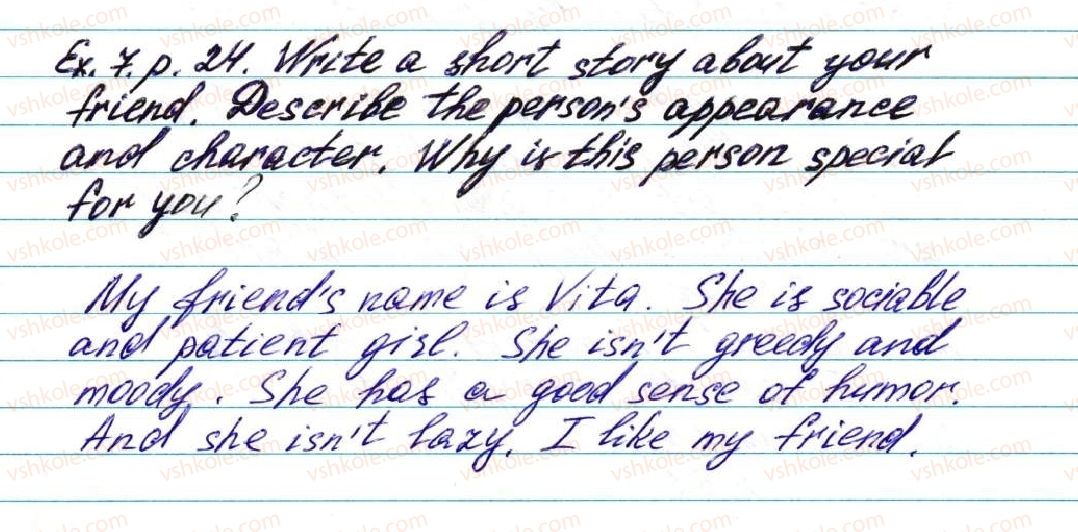 Ex. 7. p. 24. Write a short story about your
friend. Describe the person's appearance
and character. Why is this person special
for you?
My friend's name is Vita. She is sociable
and patient girl. She isn't greedy and
moody. She has a good sense of humor.
And she isn't lazy. I like my friend.